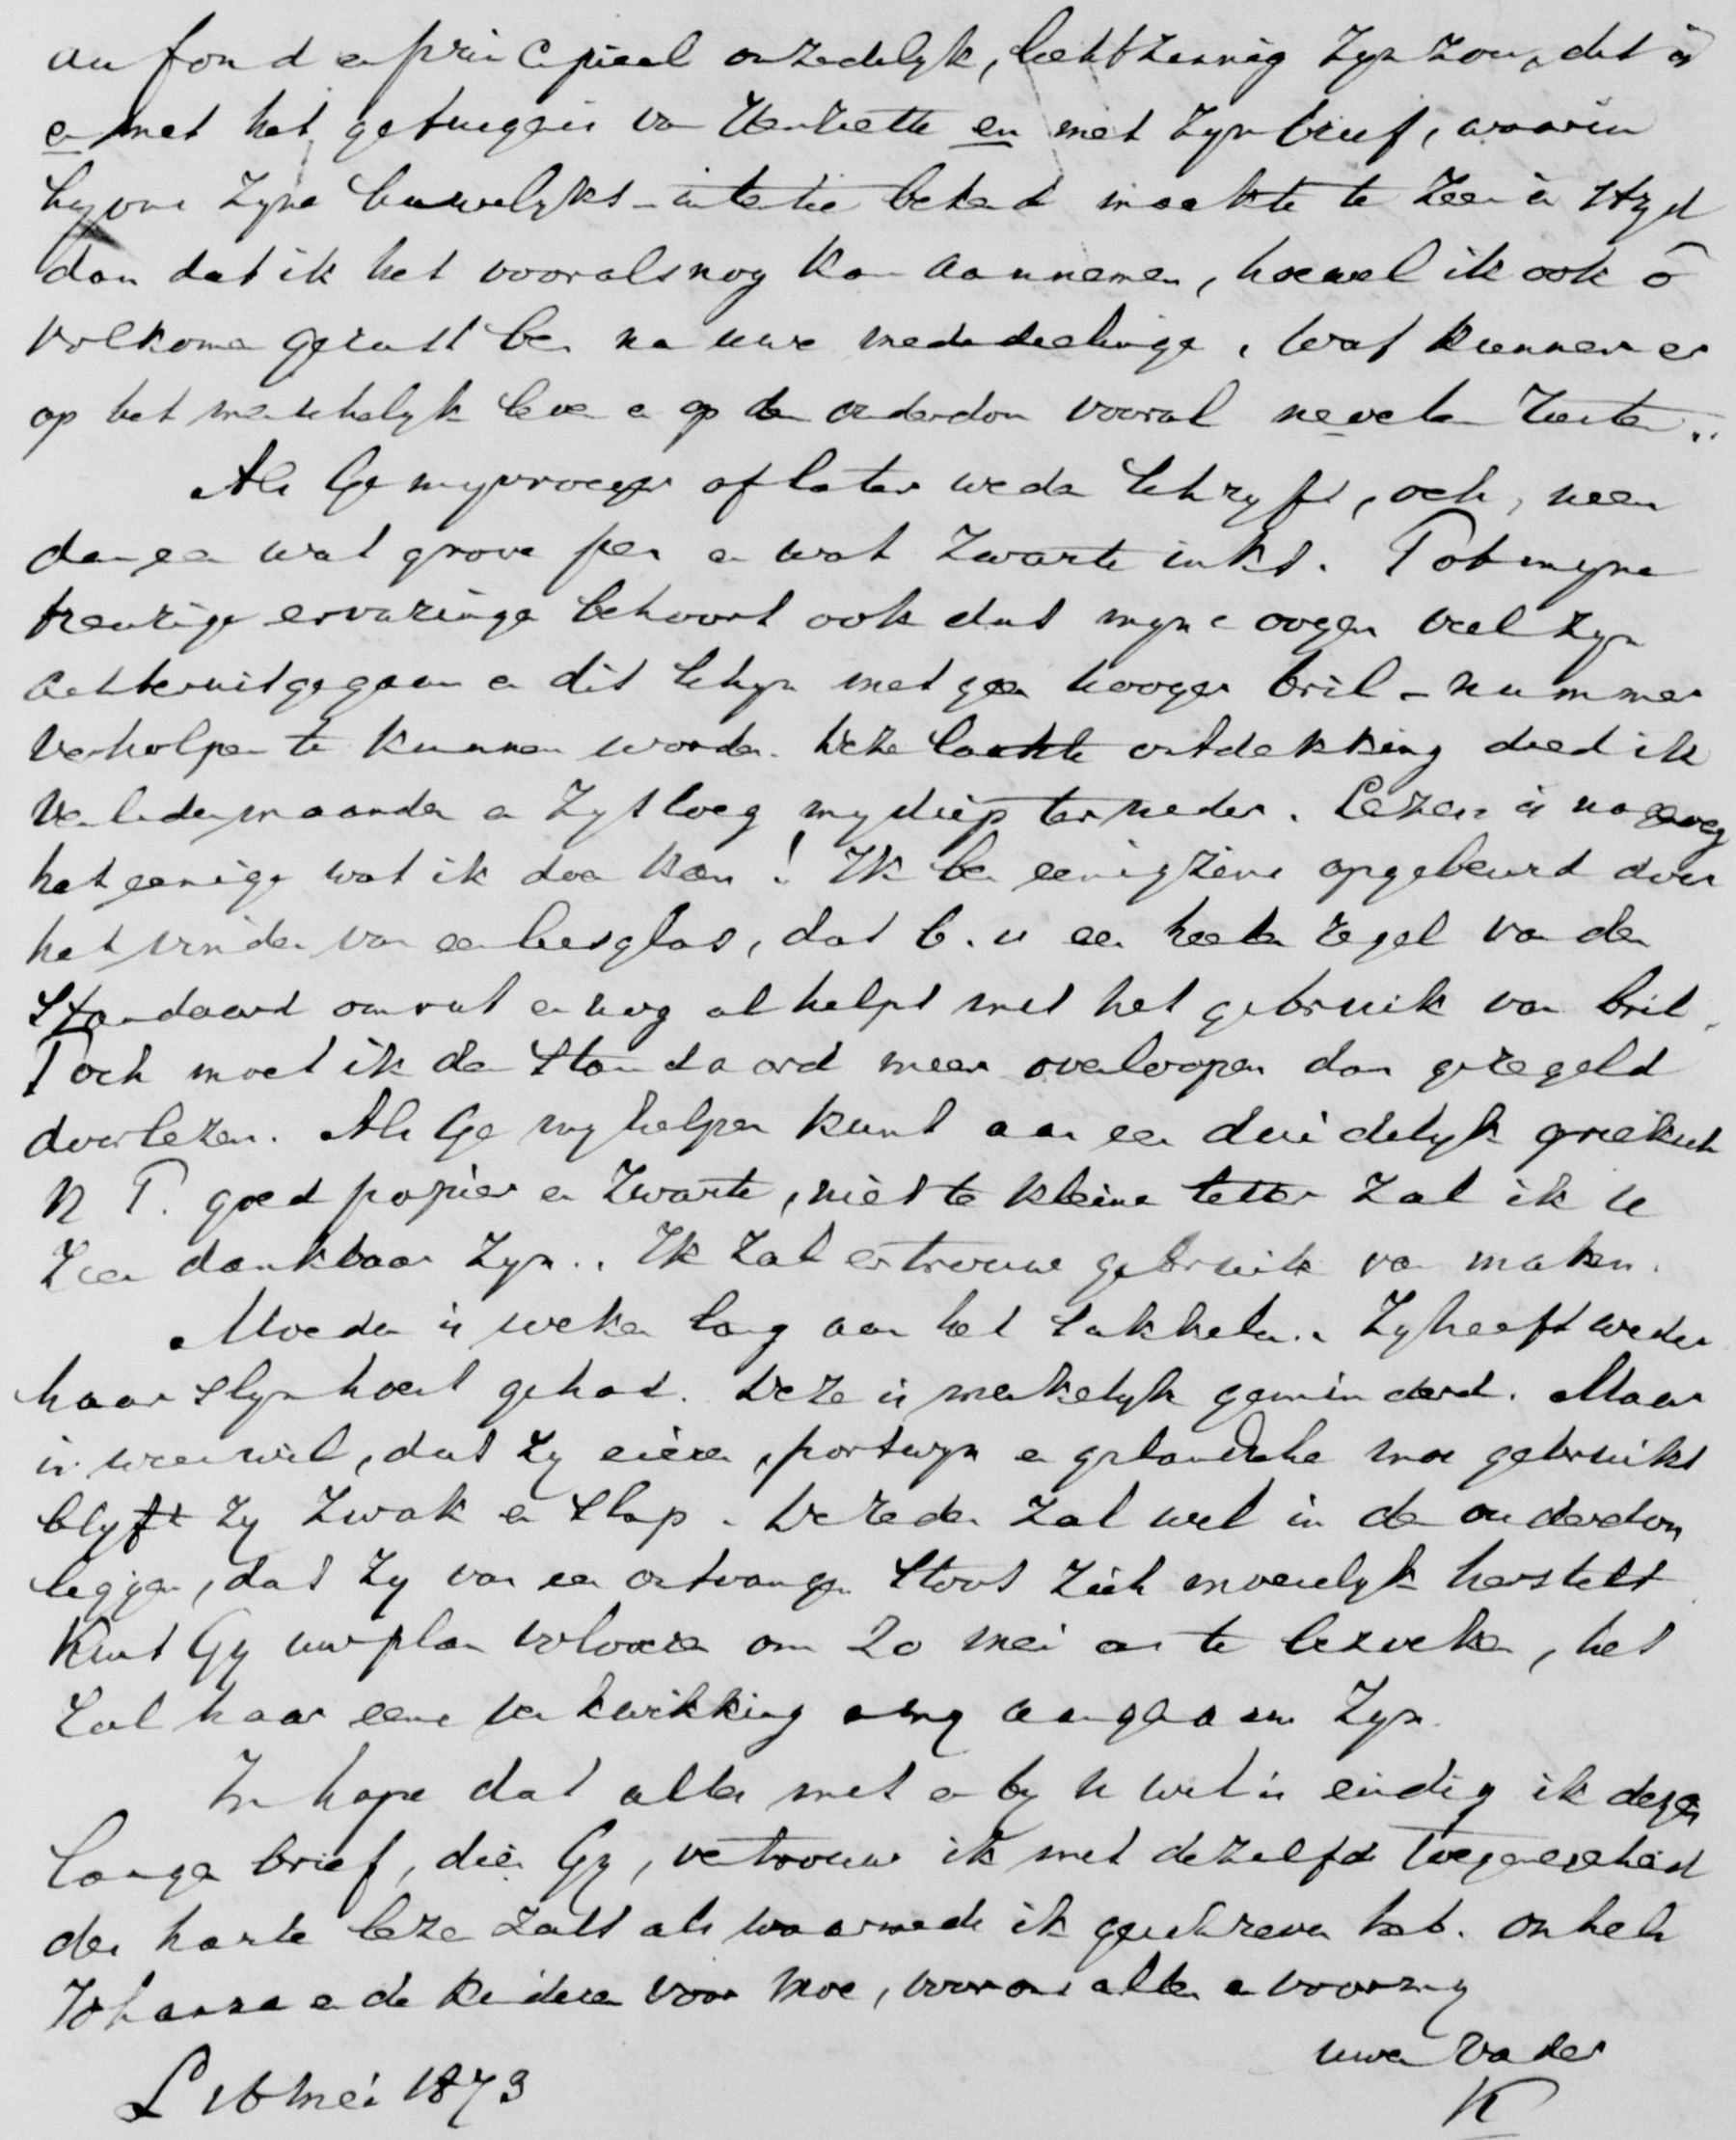 au fond en principieel onzedelyk, lichtzinnig zyn zou, dit is
en met het getuigenis van Henriette en met zyn brief, waarin
hy ons zyne huwelyks-intentie bekend maakte te zeer in stryd
dan dat ik het vooralsnog kan aannemen, hoewel ik ook
volkomen gerust ben na uwe mededeelingen, wat kunnen er
op het menschelyk leven en op den ouderdom vooral nevelen rusten..
Als Ge my vroeger of later weder schryft, och, neem
dan een wat grove pen en wat zwarte inkt. Tot myne
treurige ervaringen behoort ook dat myne oogen veel zyn
achteruitgegaan en dit schyn met geen hooger bril-nummer
verholpen te kunnen worden. Deze laatste ontdekking deed ik
verleden maanden en zy sloeg my diep ter neder. Lezen is nagenoeg
het eenige wat ik doen kan! Ik ben eenigzins opgebeurd door
het vinden van een leesglas, dat b.v. een heelen regel van den
Standaard omvat en nog al helpt met het gebruik van bril.
Toch moet ik den Standaard meer overloopen dan geregeld
doorlezen. Als Ge my helpen kunt aan een duidelyk grieksch
N T. goed papier en zwarte, niet te kleine letter zal ik U
zeer dankbaar zyn.. Ik zal er trouw gebruik van maken.
Moeder is weken lang aan het sukkelen. Zy heeft weder
haar slymhoest gehad. Deze is merkelyk geminderd. Maar
in weerwil, dat zy eieren, portwyn en yslandsche mos gebruikt
blyft zy zwak en slap. De reden zal wel in den ouderdom
leggen, dat zy van een ontvangen stoot zich moeielyk herstelt
Kunt Gy uw plan volvoeren om 20 mei ons te bezoeken, het
zal haar eene verkwikking en my aangenaam zyn.
In hope dat alles met en by U wel is eindig ik dezen
langen brief, dien Gy, vertrouw ik met dezelfde toegenegenheid
des harten lezen zult als waarmede ik geschreven heb. Omhels
Johanna en de kinderen voor Moe, voor ons allen en voor my
uwen Vader
K
L 16 Mei 1873